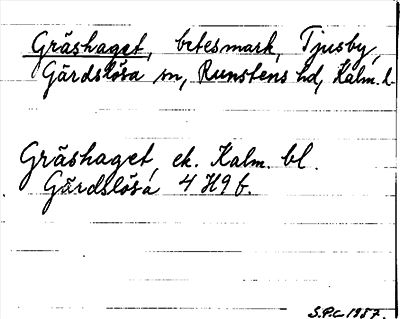 Gräshaget, betesmark, Tjusby,
Gärdslösa sn, Runstens hd, Kalm. l.
Gräshaget, ek. Kalm. bl.
Gärdslösa 4 H9 f.
S.P.c 1957.